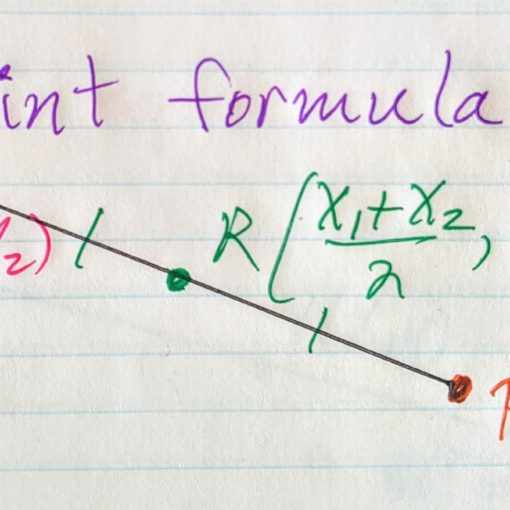 int formula
2) R (X₁+X₂/2,